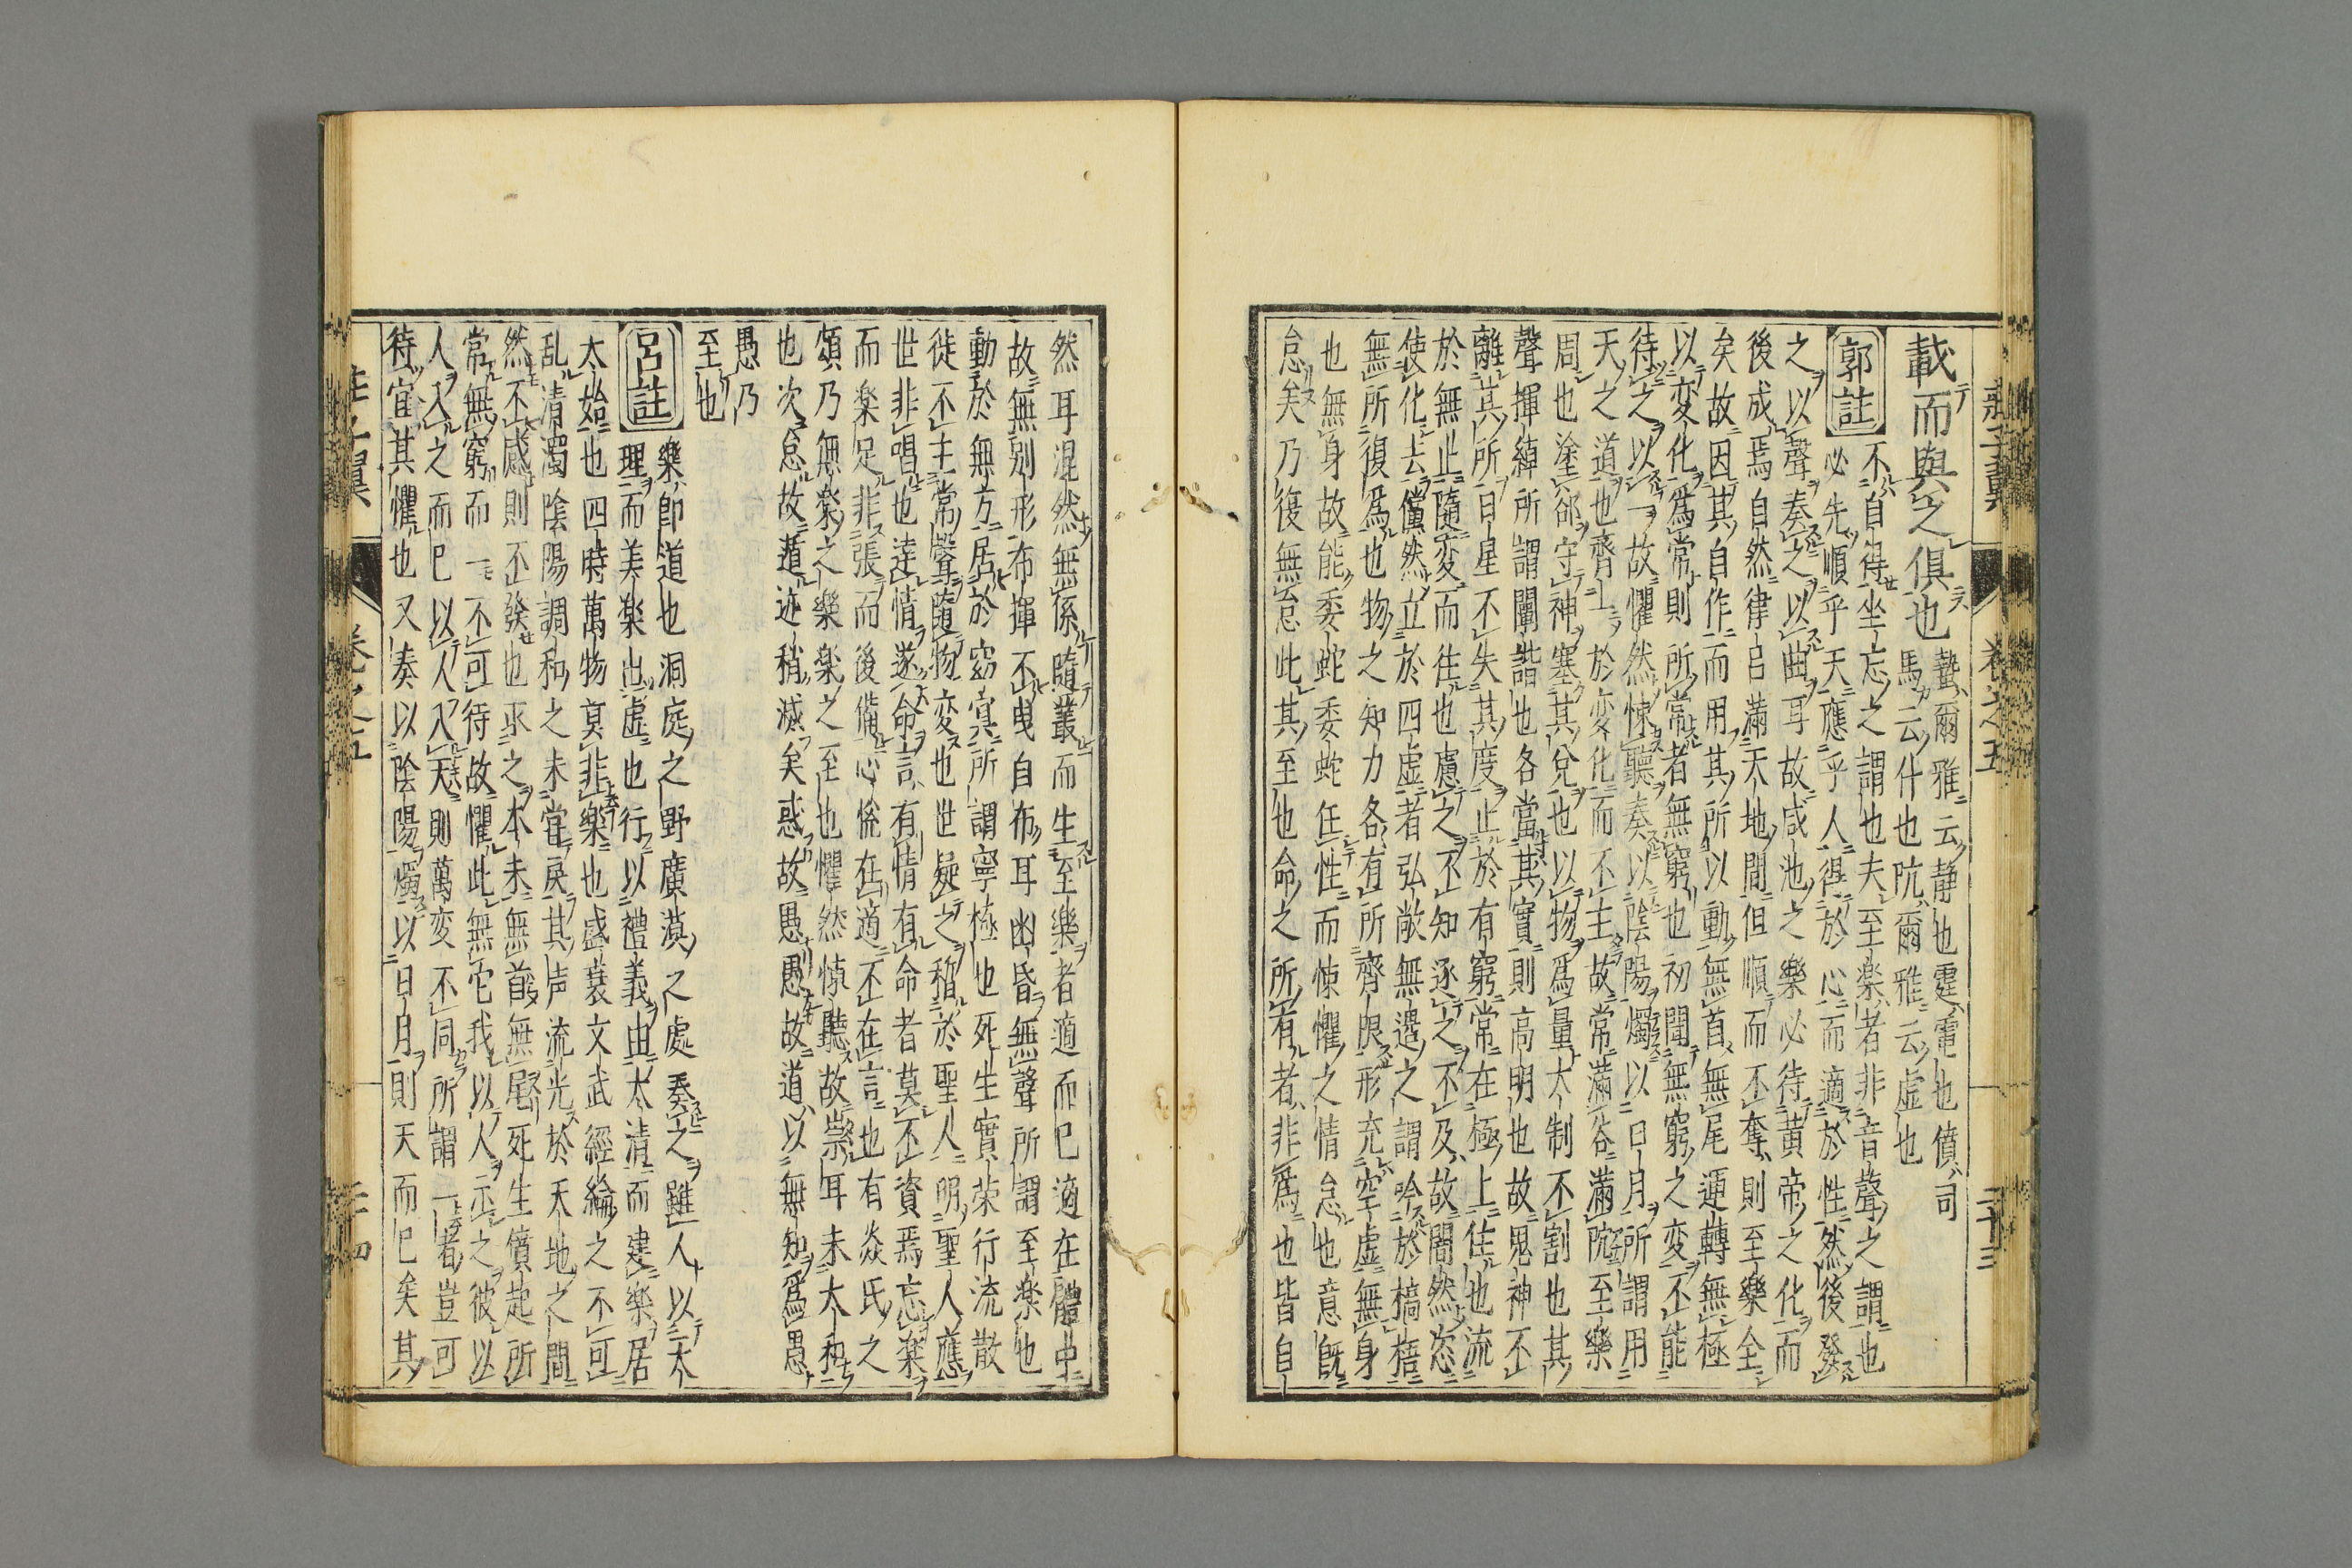 莊子翼 卷之五 二十三
載而與之俱也
蟄爾雅云静也霆電也僨司
馬云什也阬爾雅云虛也
郭註
不自得坐忘之謂也夫至楽者非音聲之謂也
必先順乎天應乎人得於心而適於性然後發
之以聲奏之以曲耳故咸池之樂必待黄帝之化而
後成焉自然律呂滿天地間但順而不奪則至樂全
矣故因其自作而用其所以動無首無尾運轉無極
以変化爲常則所常者無窮也初聞無窮之変不能
待之以一故懼然悚聽奏以陰陽燭以日月所謂用
天之道也齊一於変化而不主故常滿谷滿阬至樂
周也塗郤守神塞其兌也以物爲量大制不割也其
聲揮綽所謂闡諧也各當其實則高明也故鬼神不
離其所日星不失其度止於有窮常在極上住也流
於無止隨変而往也慮之不知逐之不及故闇然恣
使化去儻然立於四虚者弘敞無邊之謂吟於槁梧
無所復爲也物之知力各有所齊限形充空虛無身
也無身故能委蛇委蛇任性而悚懼之情怠也意既
怠矣乃復無怠此其至也命之所有者非爲也皆自
然耳混然無係隨叢而生至樂者適而已適在體中
故無別形布揮不曳自布耳幽昏無聲所謂至楽也
動於無方居於窈冥所謂寧極也死生實荣行流散
徙不主常聲隨物変也世疑之稽於聖人明聖人應
世非唱也達情遂命言有情有命者莫不資焉忘楽
而楽足非張而後備心恱在適不在言也有焱氏之
頌乃無楽之樂楽之至也懼然悚聽故祟耳未大和
也次怠故遁迹稍滅矣惑故愚愚故道以無知爲愚
愚乃
至也
呂註
樂即道也洞庭之野廣漠之處奏之雖人以太
理而美楽出虛也行以禮義由太清而建樂居
太始也四時萬物莫非樂也盛衰文武經綸之不可
乱清濁陰陽調和之未嘗戾其声流光於天地之間
然不感則不發也卒之本未無首無尾死生僨起所
常無窮而一不可待故懼此無它我以人示之彼以
人入之而已以人入天則萬変不同所謂一者豈可
待宜其懼也又奏以陰陽燭以日月則天而已矣其